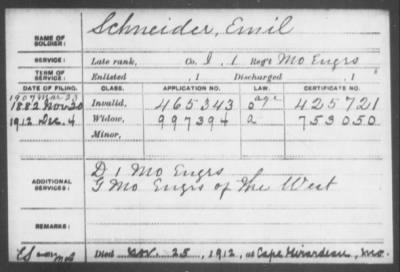 NAME OF SOLDIER: Schneider, Emil
SERVICE: Late rank, Co. I, 1 Reg't Mo Engrs
TERM OF SERVICE: Enlisted , 1 Discharged , 1
DATE OF FILING. CLASS. APPLICATION NO. LAW. CERTIFICATE NO.
1907 Mar 23
1882 Nov 20 Invalid, 465343 age 425721
1912 Dec. 4 Widow, 997394 a 753050
Minor,
ADDITIONAL SERVICES: D 1 Mo Engrs
G Mo Engrs of The West
REMARKS:
Died Nov. 25, 1912, at Cape Girardeau, Mo.